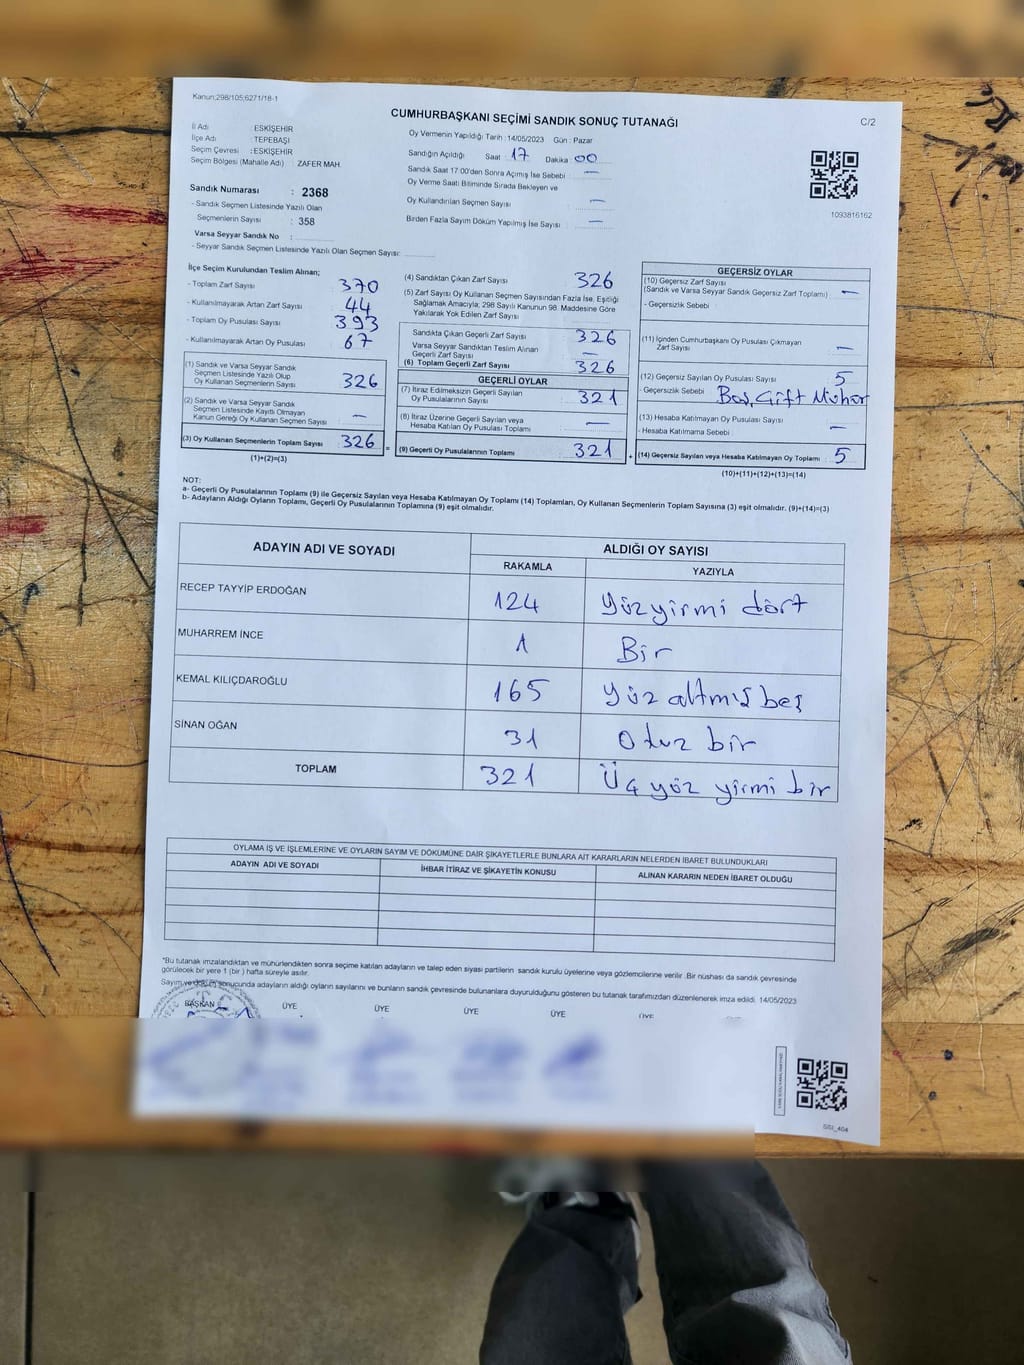 Kanun;298/105;6271/18-1
CUMHURBAŞKANI SEÇİMİ SANDIK SONUÇ TUTANAĞI
C/2
İl Adı : ESKİŞEHİR
İlçe Adı : TEPEBAŞI
Seçim Çevresi : ESKİŞEHİR
Seçim Bölgesi (Mahalle Adı) : ZAFER MAH.
Sandık Numarası : 2368
- Sandık Seçmen Listesinde Yazılı Olan
Seçmenlerin Sayısı : 358
Varsa Seyyar Sandık No :
- Seyyar Sandık Seçmen Listesinde Yazılı Olan Seçmen Sayısı:
Oy Vermenin Yapıldığı Tarih : 14/05/2023 Gün : Pazar
Sandığın Açıldığı Saat 17 Dakika 00
Sandık Saat 17:00'den Sonra Açmış İse Sebebi : —
Oy Verme Saati Bitiminde Sırada Bekleyen ve
Oy Kullandırılan Seçmen Sayısı : —
Birden Fazla Sayım Döküm Yapılmış İse Sayısı : —
1093816162
İlçe Seçim Kurulundan Teslim Alınan;
- Toplam Zarf Sayısı 370
- Kullanılmayarak Artan Zarf Sayısı 44
- Toplam Oy Pusulası Sayısı 393
- Kullanılmayarak Artan Oy Pusulası 67
(1) Sandık ve Varsa Seyyar Sandık
Seçmen Listesinde Yazılı Olup
Oy Kullanan Seçmenlerin Sayısı 326
(2) Sandık ve Varsa Seyyar Sandık
Seçmen Listesinde Kayıtlı Olmayan
Kanun Gereği Oy Kullanan Seçmen Sayısı —
(3) Oy Kullanan Seçmenlerin Toplam Sayısı 326
(1)+(2)=(3)
=
(4) Sandıktan Çıkan Zarf Sayısı 326
(5) Zarf Sayısı Oy Kullanan Seçmen Sayısından Fazla İse, Eşitliği
Sağlamak Amacıyla; 298 Sayılı Kanunun 98. Maddesine Göre
Yakılarak Yok Edilen Zarf Sayısı
Sandıkta Çıkan Geçerli Zarf Sayısı 326
Varsa Seyyar Sandıktan Teslim Alınan
Geçerli Zarf Sayısı —
(6) Toplam Geçerli Zarf Sayısı 326
GEÇERLİ OYLAR
(7) İtiraz Edilmeksizin Geçerli Sayılan
Oy Pusulalarının Sayısı 321
(8) İtiraz Üzerine Geçerli Sayılan veya
Hesaba Katılan Oy Pusulası Toplamı —
(9) Geçerli Oy Pusulalarının Toplamı 321
+
GEÇERSİZ OYLAR
(10) Geçersiz Zarf Sayısı
(Sandık ve Varsa Seyyar Sandık Geçersiz Zarf Toplamı) —
- Geçersizlik Sebebi
(11) İçinden Cumhurbaşkanı Oy Pusulası Çıkmayan
Zarf Sayısı —
(12) Geçersiz Sayılan Oy Pusulası Sayısı 5
- Geçersizlik Sebebi Boş, Çift Mühür
(13) Hesaba Katılmayan Oy Pusulası Sayısı
- Hesaba Katılmama Sebebi —
(14) Geçersiz Sayılan veya Hesaba Katılmayan Oy Toplamı 5
(10)+(11)+(12)+(13)=(14)
NOT:
a- Geçerli Oy Pusulalarının Toplamı (9) ile Geçersiz Sayılan veya Hesaba Katılmayan Oy Toplamı (14) Toplamları, Oy Kullanan Seçmenlerin Toplam Sayısına (3) eşit olmalıdır. (9)+(14)=(3)
b- Adayların Aldığı Oyların Toplamı, Geçerli Oy Pusulalarının Toplamına (9) eşit olmalıdır.
ADAYIN ADI VE SOYADI
ALDIĞI OY SAYISI
RAKAMLA YAZIYLA
RECEP TAYYİP ERDOĞAN 124 Yüzyirmi dört
MUHARREM İNCE 1 Bir
KEMAL KILIÇDAROĞLU 165 yüz altmış beş
SİNAN OĞAN 31 Otuz bir
TOPLAM 321 Üç yüz yirmi bir
OYLAMA İŞ VE İŞLEMLERİNE VE OYLARIN SAYIM VE DÖKÜMÜNE DAİR ŞİKAYETLERLE BUNLARA AİT KARARLARIN NELERDEN İBARET BULUNDUKLARI
ADAYIN ADI VE SOYADI İHBAR İTİRAZ VE ŞİKAYETİN KONUSU ALINAN KARARIN NEDEN İBARET OLDUĞU
*Bu tutanak imzalandıktan ve mühürlendikten sonra seçime katılan adayların ve talep eden siyasi partilerin sandık kurulu üyelerine veya gözlemcilerine verilir. Bir nüshası da sandık çevresinde
görülecek bir yere 1 (bir ) hafta süreyle asılır.
Sayım ve döküm sonucunda adayların aldığı oyların sayılarını ve bunların sandık çevresinde bulunanlara duyurulduğunu gösteren bu tutanak tarafımızdan düzenlenerek imza edildi. 14/05/2023
BAŞKAN ÜYE ÜYE ÜYE ÜYE ÜYE